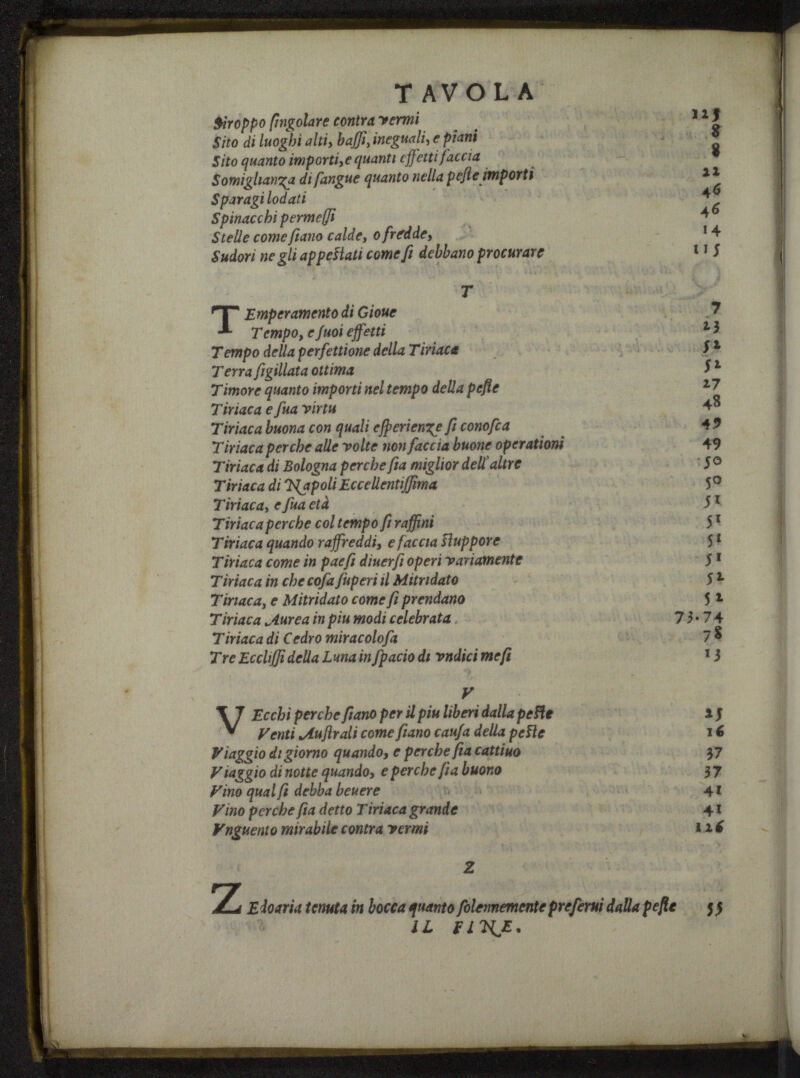 TAVOLA
Siroppo ſingolare contra vermi 125
Sito di luoghi alti, baſſi, ineguali, e piani 8
Sito quanto importi, e quanti effetti faccia 8
Somiglianza di ſangue quanto nella peſte importi 22
Sparagi lodati 46
Spinacchi permeſſi 46
Stelle come ſiano calde, o fredde, 14
Sudori ne gli appeſtati come ſi debbano procurare 115
T
TEmperamento di Gioue 7
Tempo, e ſuoi effetti 23
Tempo della perfettione della Tiriaca 52
Terra ſigillata ottima 52
Timore quanto importi nel tempo della peſte 27
Tiriaca e ſua virtu 48
Tiriaca buona con quali eſperienze ſi conoſca 49
Tiriaca perche alle volte non faccia buone operationi 49
Tiriaca di Bologna perche ſia miglior dell'altre 50
Tiriaca di Napoli Eccellentiſſima 50
Tiriaca, e ſua età 51
Tiriaca perche col tempo ſi raffini 51
Tiriaca quando raffreddi, e faccia ſtuppore 51
Tiriaca come in paeſi diuerſi operi variamente 51
Tiriaca in che coſa ſuperi il Mitridato 52
Tiriaca, e Mitridato come ſi prendano 52
Tiriaca Aurea in piu modi celebrata. 73.74
Tiriaca di Cedro miracoloſa 78
Tre Eccliſſi della Luna in ſpacio di vndici meſi 13
V
VEcchi perche ſiano per il piu liberi dalla peſte 25
Venti Auſtrali come ſiano cauſa della peſte 16
Viaggio di giorno quando, e perche ſia cattiuo 37
Viaggio di notte quando, e perche ſia buono 37
Vino qual ſi debba beuere 41
Vino perche ſia detto Tiriaca grande 41
Vnguento mirabile contra vermi 126
Z
ZEdoaria tenuta in bocca quanto ſolennemente preſerui dalla peſte 55
IL FINE.